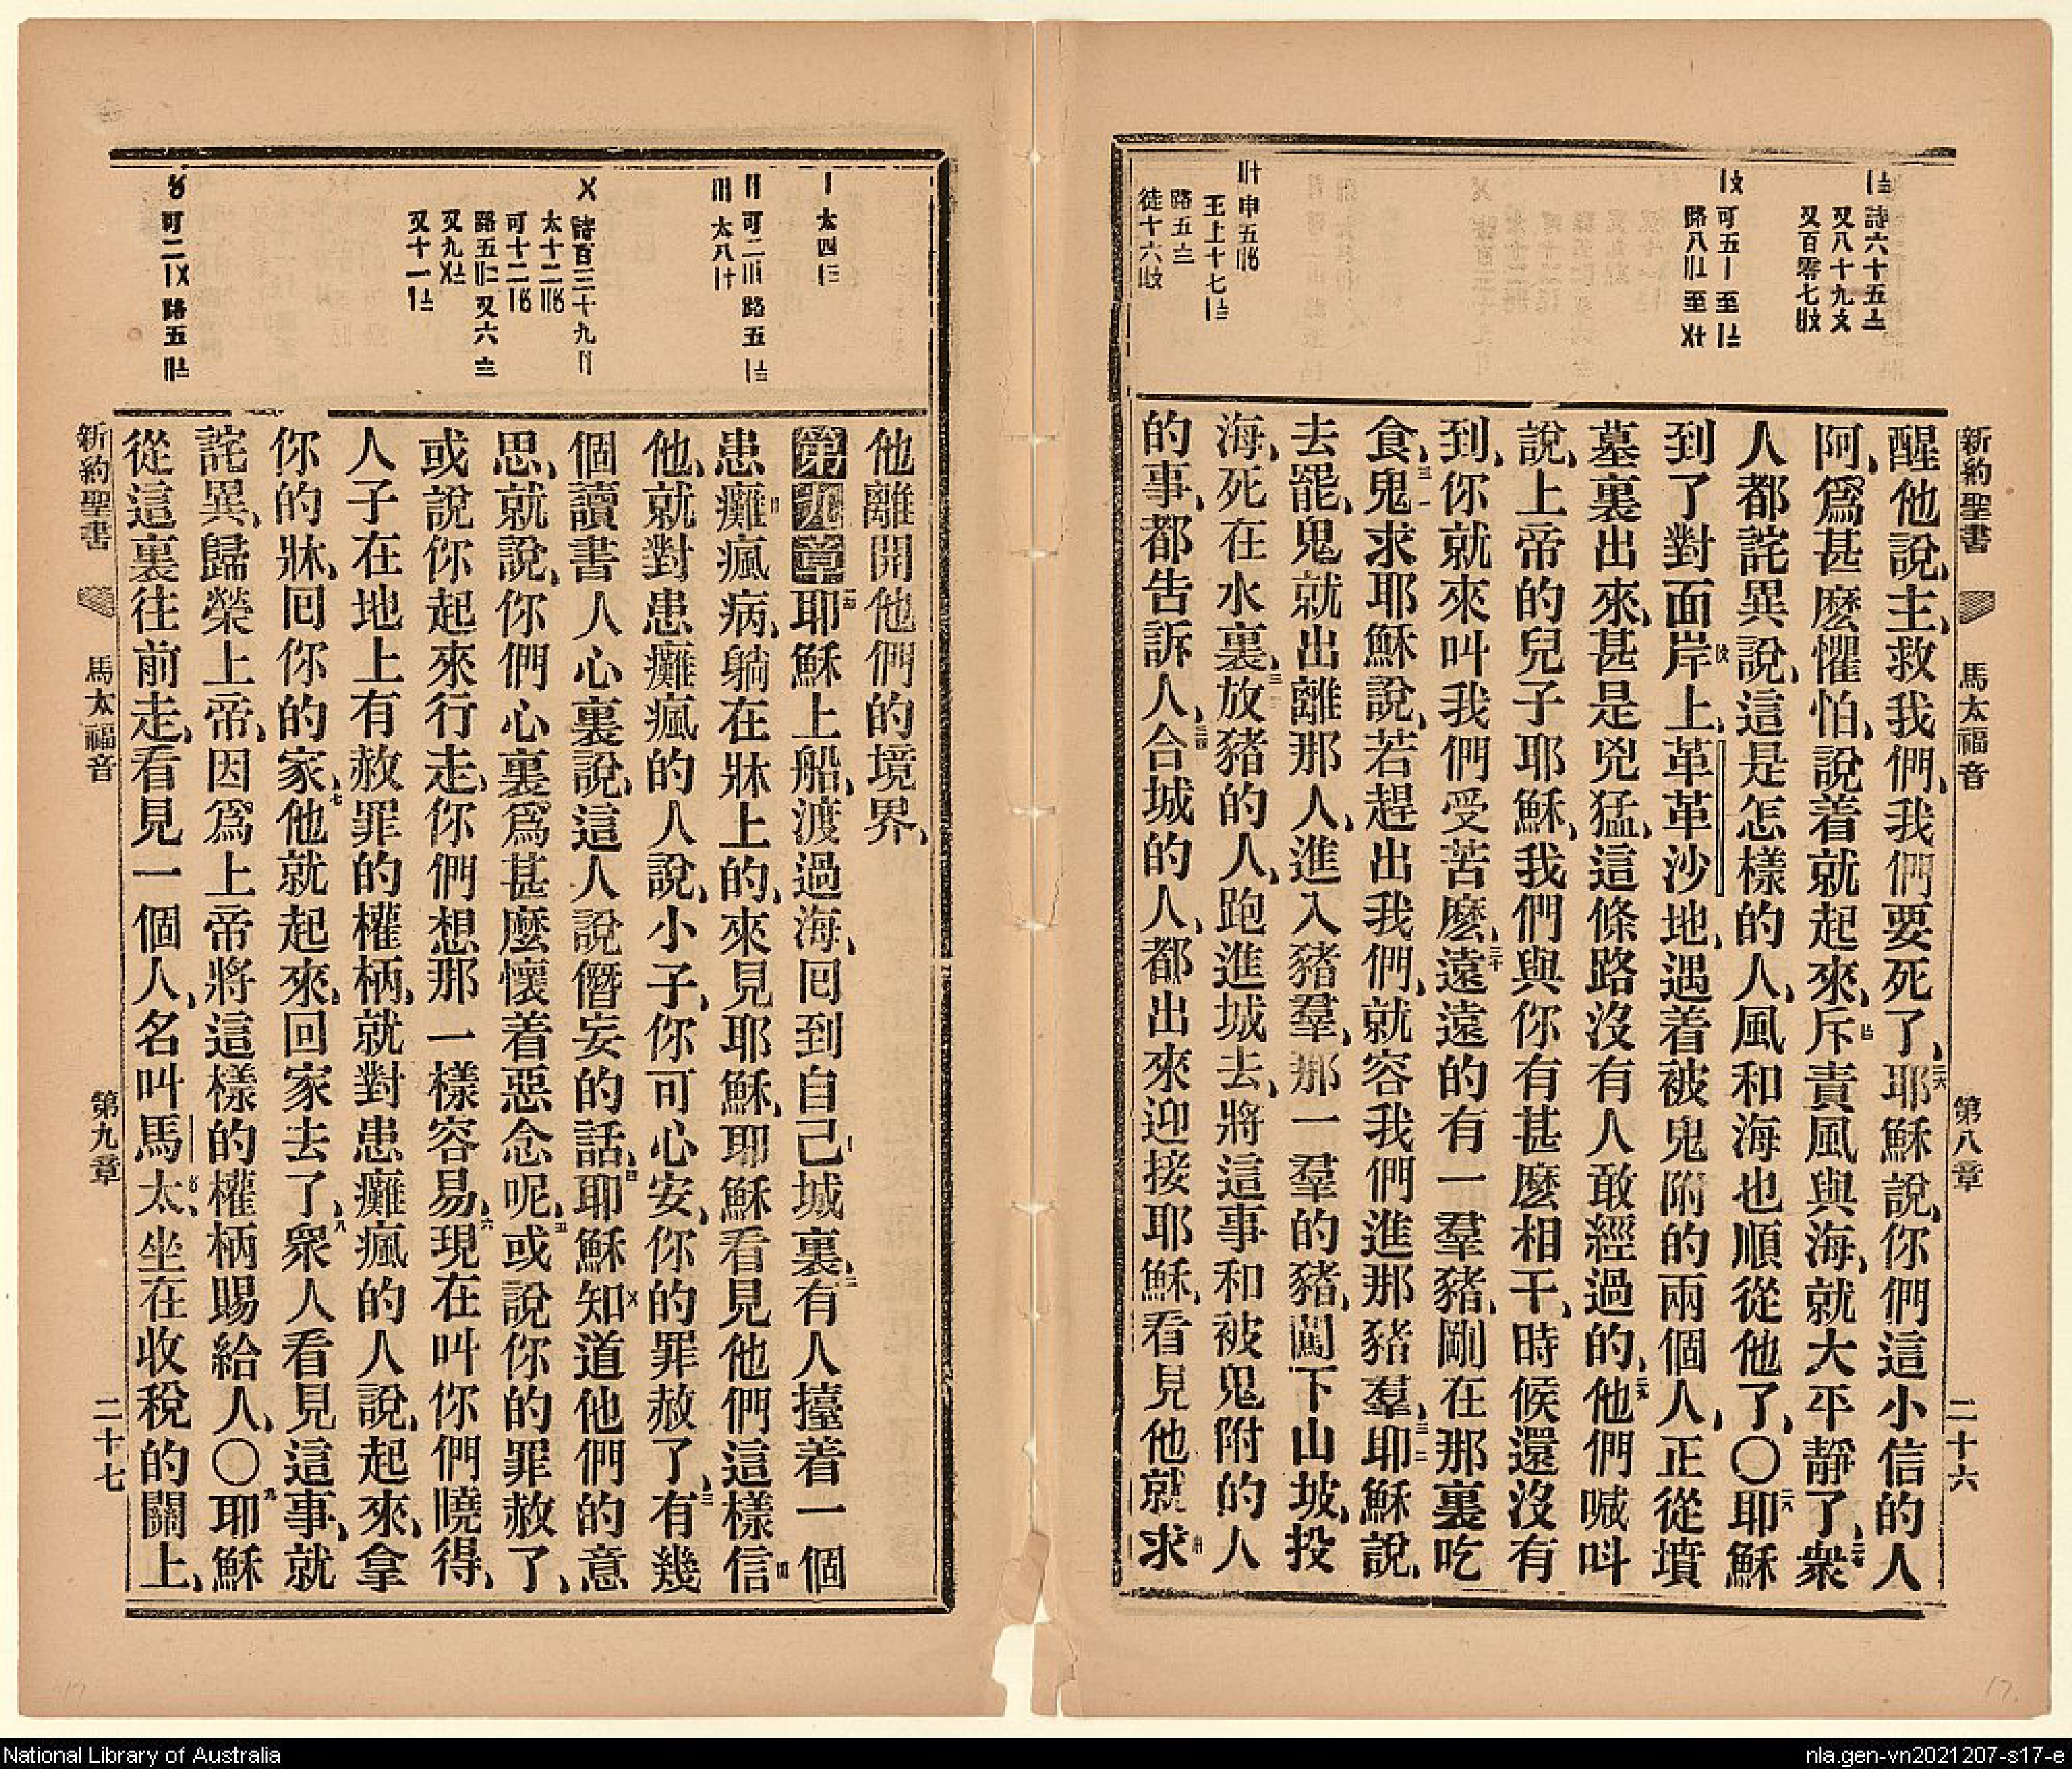 新約聖書 馬太福音 第八章 二十六
醒他說、主、救我們、我們要死了、二六耶穌說、你們這小信的人
阿、爲甚麽懼怕、說着就起來、斥責風與海、就大平靜了、二七衆
人都詫異說、這是怎樣的人、風和海也順從他了、〇二八耶穌
到了對面岸上、革革沙地、遇着被鬼附的兩個人、正從墳
墓裏出來、甚是兇猛、這條路沒有人敢經過的、二九他們喊呌
說、上帝的兒子耶穌、我們與你有甚麽相干、時候還沒有
到、你就來叫我們受苦麽、三十遠遠的有一羣豬、剛在那裏吃
食、三一鬼求耶穌說、若趕出我們、就容我們進那豬羣、三二耶穌說、
去罷、鬼就出離那人、進入豬羣、那一羣的豬、闖下山坡、投
海、死在水裏、三三放豬的人、跑進城去、將這事和被鬼附的人
的事、都告訴人、三四合城的人、都出來迎接耶穌、看見他就求
詩六十五
又八十九
又百零七
可五〡至
路八 至
申五
王上十七
路五
徒十六
他離開他們的境界、
第九章一耶穌上船、渡過海、囘到自己城裏、二有人擡着一個
患癱瘋病、躺在牀上的、來見耶穌、耶穌看見他們這樣信
他、就對患癱瘋的人說、小子、你可心安、你的罪赦了、三有幾
個讀書人心裏說、這人說僭妄的話、四耶穌知道他們的意
思、就說、你們心裏爲甚麽懷着惡念呢、五或說你的罪赦了、
或說你起來行走、你們想那一樣容易、六現在叫你們曉得、
人子在地上有赦罪的權柄、就對患癱瘋的人說、起來、拿
你的牀、囘你的家、七他就起來、回家去了、八衆人看見這事、就
詫異、歸榮上帝、因爲上帝將這樣的權柄賜給人、〇九耶穌
從這裏往前走、看見一個人、名叫馬太、坐在收稅的關上、
〡 太四
〢 可二〣 路五
〣 太八
〤 詩百三十九
太十二
可十二
路五 又六
又九
又十一
可二 路五
新約聖書 馬太福音 第九章 二十七
17
17.
National Library of Australia
nla.gen-vn2021207-s17-e